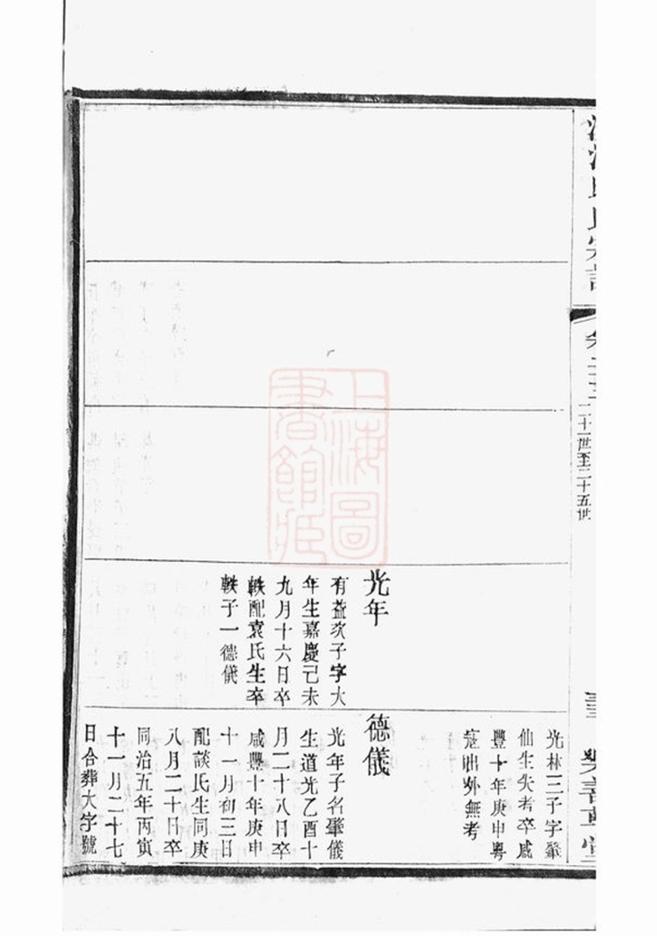 氏宗譜
卷二十三
二十一世至二十五世
善堂
光林三子字肇
仙生失考卒咸
豐十年庚申粵
寇出外無考
光年
有益次子字大
年生嘉慶己未
九月十六日卒
軼配袁氏生卒
軼子一德儀
德儀
光年子名肇儀
生道光乙酉十
月二十八日卒
咸豐十年庚申
十一月初三日
配談氏生同庚
八月二十日卒
同治五年丙寅
十一月二十七
日合葬大字號
上海圖
書館藏